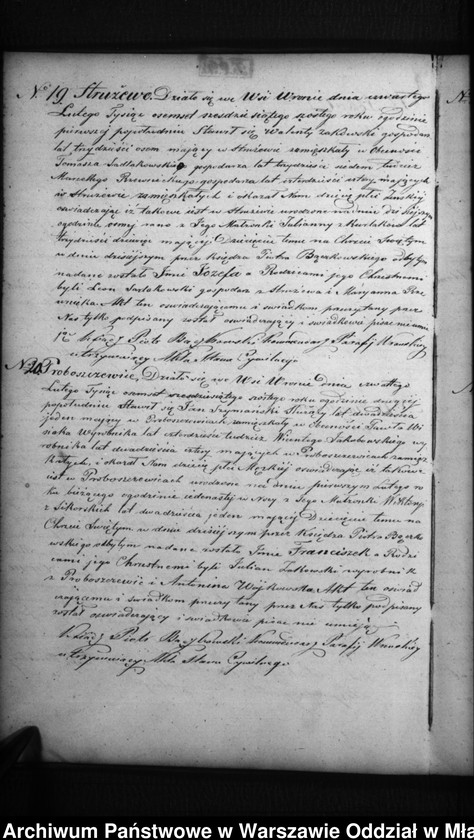 No 19 Strużewo. Działo się we Wsi Wronie dnia czwartego
Lutego Tysiąc osemset sześćdziesiątego szóstego roku ogodzinie
pierwszej popołudniu Stawił się Walenty Żakowski gospodarz
lat trzydzieści osem mający w Strużewie zamięszkały w Obecności
Tomasza Sadlakowskiego gospodarza lat trzydzieści siedem tudzież
Marcellego gospodarza lat cztery mających
w Strużewie zamięszkałych i okazał Nam dziecię płci Żeńskiej
oświadczając iż takowe jest w Strużewie urodzone na dniu dzisiejszym
ogodzinie osmy rano z Jego Małżonki Julianny z lat
trzydzieści dziewięć mającej. Dziecięciu temu na Chrzcie Świętym
w dniu dzisiejszym przez Księdza Piotra odbytym
nadane zostało Imie Józefa a Rodzicami jego Chrzestnemi
byli Leon Sadlakowski gospodarz z Strużewa i Maryanna
Akt ten oświadczającemu i świadkom przeczytany przez
Nas tylko podpisany został oświadczający i świadkowie pisac nie umie
ją. Xiądz Piotr Parafij Wrońskiej
utrzymujący Akta Stanu Cywilnego
No 20 Proboszczewice. Działo się we Wsi Wronie Dnia czwartego
Lutego Tysiąc osemset sześćdziesiątego szóstego roku ogodzinie drugiej
popołudniu Stawił się Jan Szymański Służący lat dwadzieścia
jeden mający w Proboszczewicach zamięszkały w Obecności Pawła
Wyrobnika lat czterdzieści tudzież Wincentego Jakubowskiego wy
robnika lat dwadzieścia cztery mających w Proboszczewicach zamięsz
kałych, i okazał Nam dziecię płci Męzkiej oświadczając iż takowe
jest w Proboszczewicach urodzone na dniu pierwszym Lutego ro
ku bieżącego ogodzinie jedenastej w Nocy z Jego Małżonki Wiktoryi
z Sikorskich lat dwadzieścia jeden mającej Dziecięciu temu na
Chrzcie Świętym w dniu dzisiejszym przez Księdza Piotra
odbytym nadane zostało Imie Franciszek a Rodzi
cami jego Chrzestnemi byli Julian Żakowski wyrobnik
z Proboszczewic i Antonina Wojkowska Akt ten oświad
czającemu i świadkom przeczytany przez Nas tylko podpisany
został oświadczający i świadkowie pisac nie umieją
Xiądz Piotr Parafij Wrońskiej
utrzymujący Akta Stanu Cywilnego
Archiwum Państwowe w Warszawie Oddział w Mła